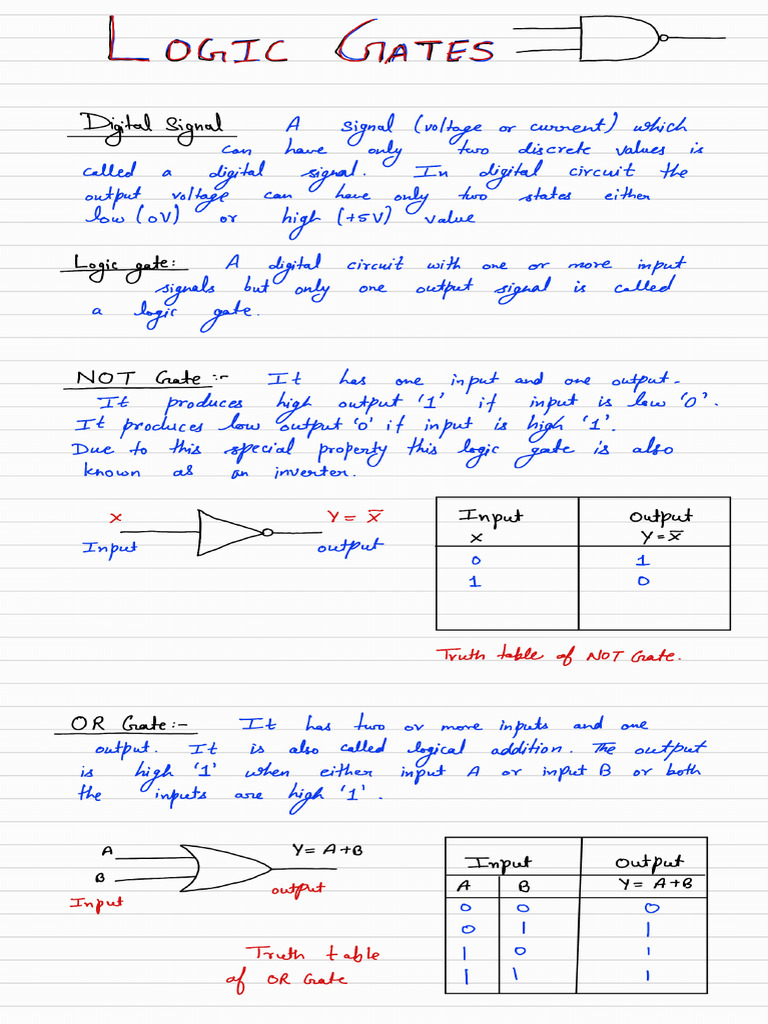 LOGIC GATES
Digital Signal A signal (voltage or current) which
can have only two discrete values is
called a digital signal. In digital circuit the
output voltage can have only two states either
low (0V) or high (+5V) value
Logic gate: A digital circuit with one or more input
signals but only one output signal is called
a logic gate.
NOT Gate :- It has one input and one output.
It produces high output '1' if input is low '0'.
It produces low output '0' if input is high '1'.
Due to this special property this logic gate is also
known as an inverter.
X Y = X̅
Input output
Input Output
X Y = X̅
0 1
1 0
Truth table of NOT Gate.
OR Gate :- It has two or more inputs and one
output. It is also called logical addition. The output
is high '1' when either input A or input B or both
the inputs are high '1'.
A Y = A+B
B
Input output
Input Output
A B Y = A+B
0 0 0
0 1 1
1 0 1
1 1 1
Truth table
of OR Gate